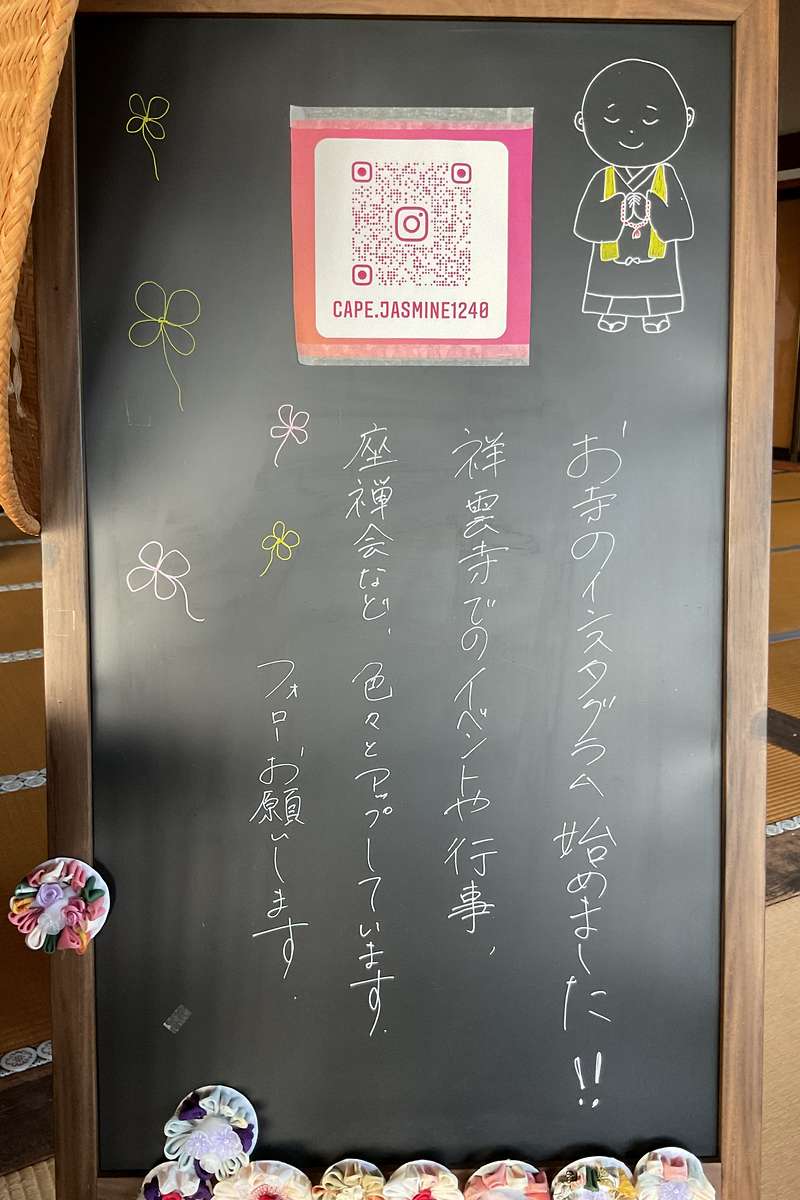 CAPE.JASMINE1240
お寺のインスタグラム 始めました!!
祥雲寺でのイベントや行事、
座禅会など、色々とアップしています。
フォローお願いします。